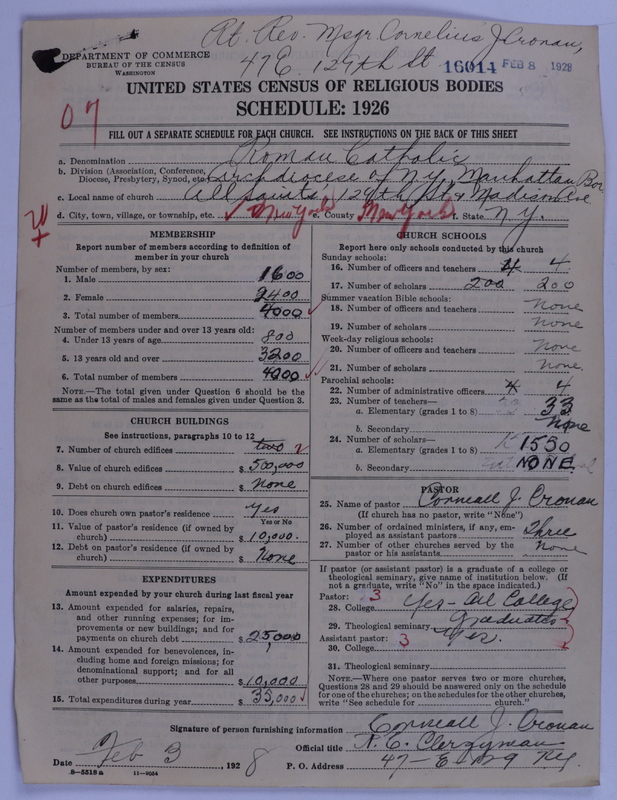 Rt. Rev. Msgr Cornelius J Cronan,
47 E. 129th St 16014 FEB 8 1928
DEPARTMENT OF COMMERCE
BUREAU OF THE CENSUS
WASHINGTON
UNITED STATES CENSUS OF RELIGIOUS BODIES
SCHEDULE: 1926
07
FILL OUT A SEPARATE SCHEDULE FOR EACH CHURCH. SEE INSTRUCTIONS ON THE BACK OF THIS SHEET
a. Denomination Roman Catholic
b. Division (Association, Conference, Diocese, Presbytery, Synod, etc.) Archdiocese of N.Y. Manhattan Bor
c. Local name of church All Saints, 129th St & Madison Ave
d. City, town, village, or township, etc. New York e. County New York f. State N.Y.
MEMBERSHIP
Report number of members according to definition of
member in your church
Number of members, by sex:
1. Male 1600
2. Female 2400
3. Total number of members 4000
Number of members under and over 13 years old:
4. Under 13 years of age 800
5. 13 years old and over 3200
6. Total number of members 4000
NOTE.—The total given under Question 6 should be the
same as the total of males and females given under Question 3.
CHURCH BUILDINGS
See instructions, paragraphs 10 to 12
7. Number of church edifices two
8. Value of church edifices $ 500,000
9. Debt on church edifices $ None
10. Does church own pastor's residence yes
Yes or No
11. Value of pastor's residence (if owned by
church) $ 10,000.
12. Debt on pastor's residence (if owned by
church) $ None
EXPENDITURES
Amount expended by your church during last fiscal year
13. Amount expended for salaries, repairs,
and other running expenses; for im-
provements or new buildings; and for
payments on church debt $ 25000
14. Amount expended for benevolences, in-
cluding home and foreign missions; for
denominational support; and for all
other purposes $ 10,000
15. Total expenditures during year $ 35,000
CHURCH SCHOOLS
Report here only schools conducted by this church
Sunday schools:
16. Number of officers and teachers 4 4
17. Number of scholars 200 200
Summer vacation Bible schools:
18. Number of officers and teachers None
19. Number of scholars None
Week-day religious schools:
20. Number of officers and teachers None
21. Number of scholars None
Parochial schools:
22. Number of administrative officers 4 4
23. Number of teachers—
a. Elementary (grades 1 to 8) 33
b. Secondary None
24. Number of scholars—
a. Elementary (grades 1 to 8) 1550
b. Secondary NONE
PASTOR
25. Name of pastor Corneall J. Cronan
(If church has no pastor, write "None")
26. Number of ordained ministers, if any, em-
ployed as assistant pastors Three
27. Number of other churches served by the
pastor or his assistants None
If pastor (or assistant pastor) is a graduate of a college or
theological seminary, give name of institution below. (If
not a graduate, write "No" in the space indicated.)
Pastor: 3
28. College Yes - All College
29. Theological seminary Graduates
Assistant pastor: 3 Yes.
30. College
31. Theological seminary
NOTE.—Where one pastor serves two or more churches,
Questions 28 and 29 should be answered only on the schedule
for one of the churches; on the schedules for the other churches,
write "See schedule for church."
Signature of person furnishing information Corneall J. Cronan
Official title R. C. Clergyman
Date Feb 3, 1928 P. O. Address 47- E
8-5518 a 11-9084